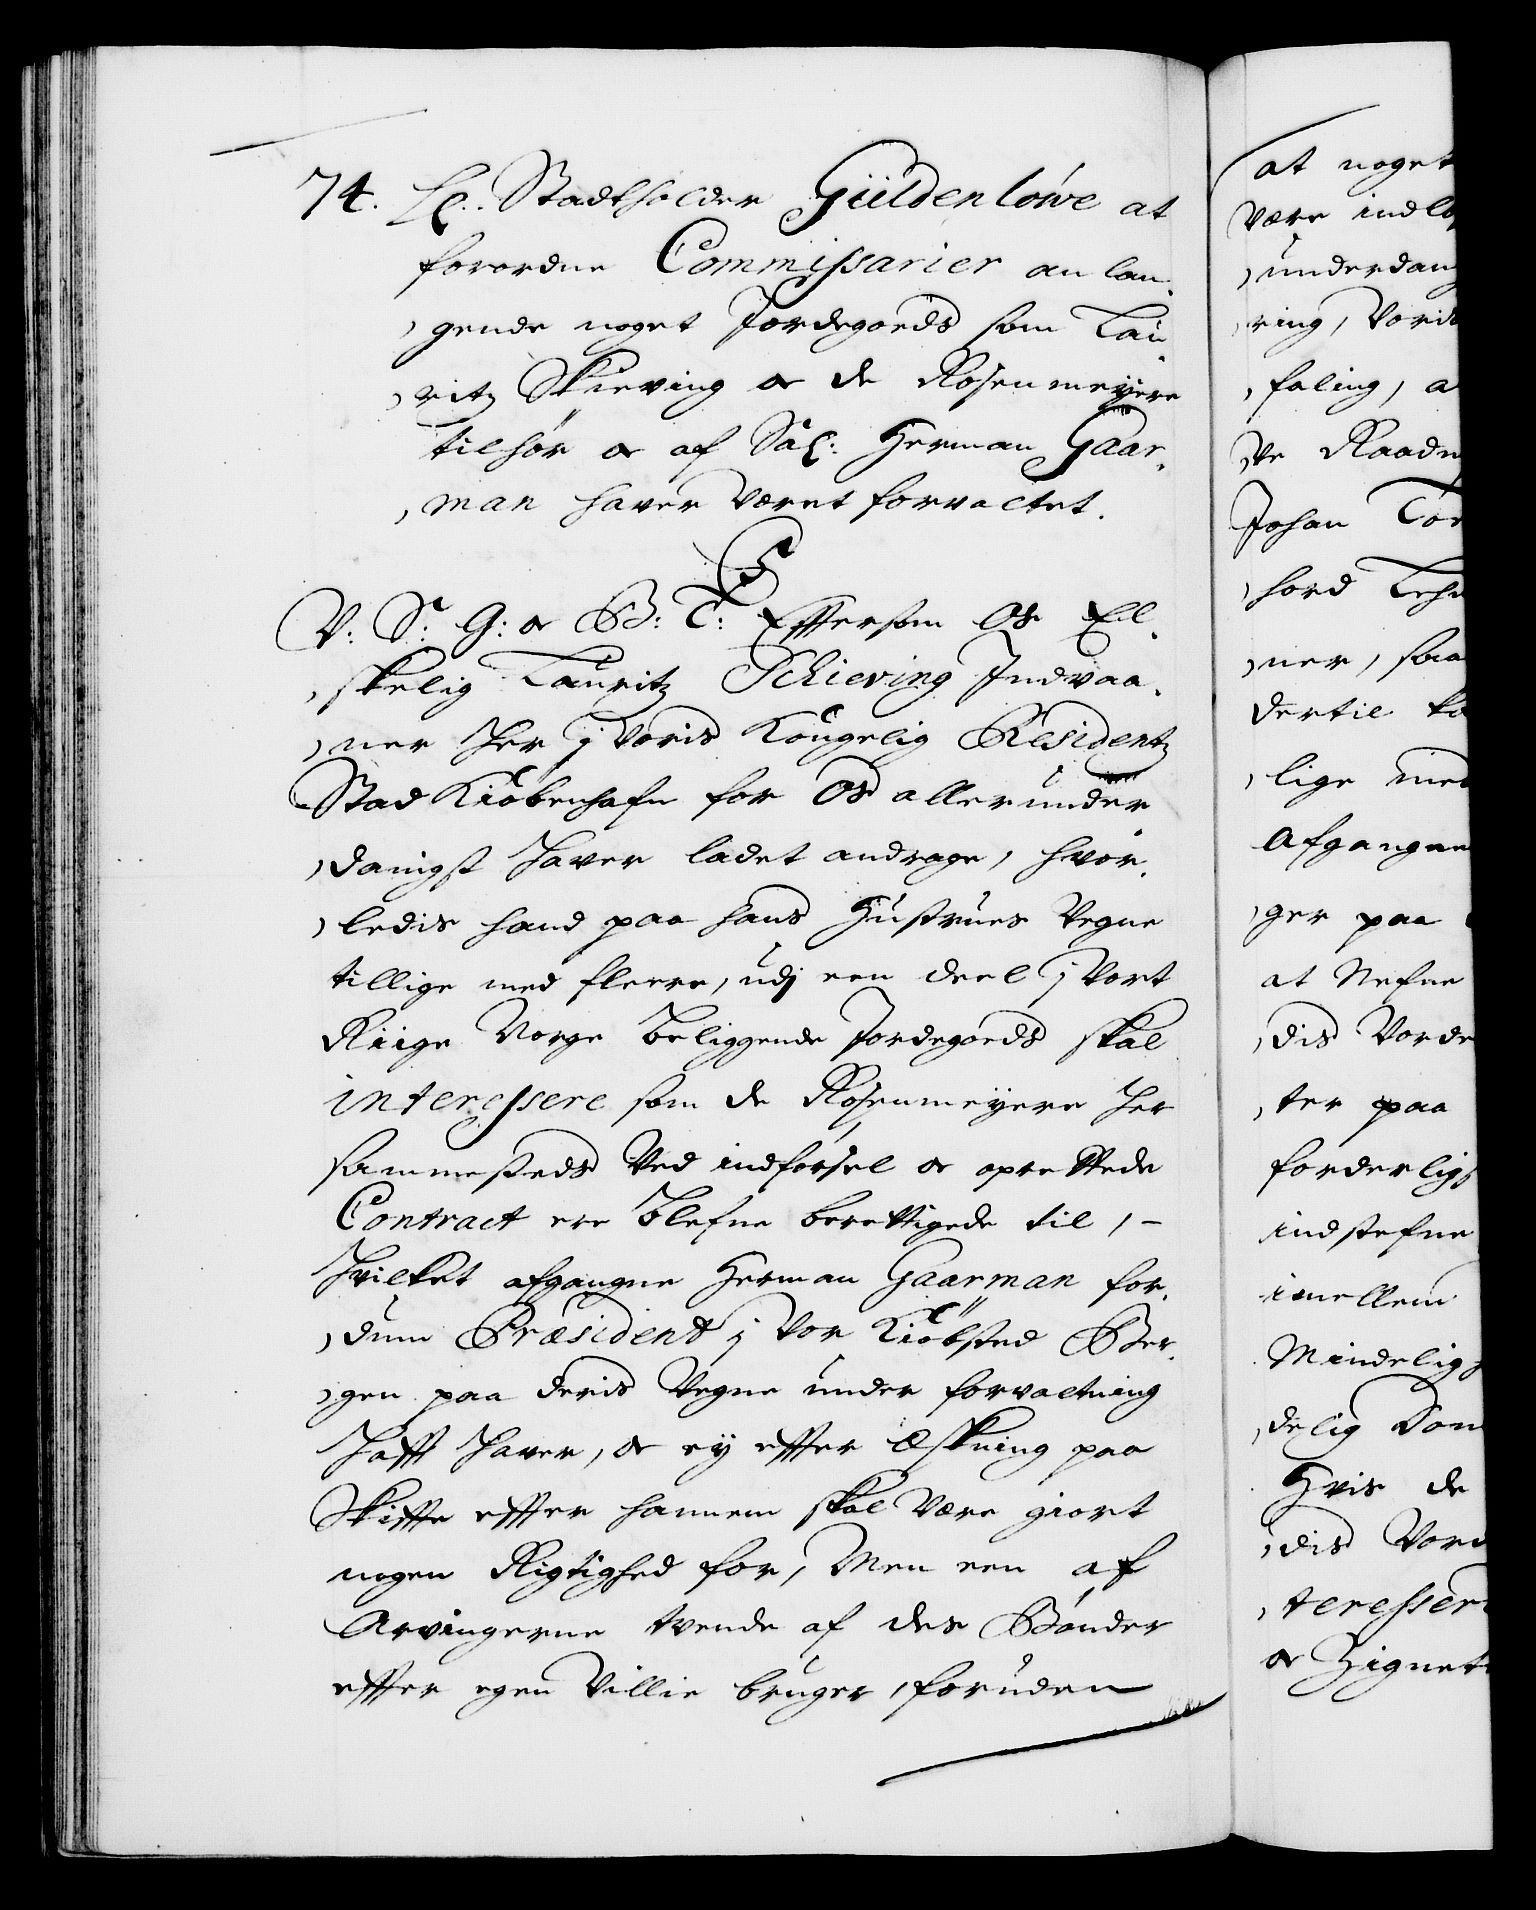 74. H: Stadtholder Güldenløwe at
forordne Commissarier an lan-
gende noget Jordegoeds som Lau-
ritz Skieving oc de Rosenmeyere
tilhør oc af Sal: Herman Gaar-
man hafver Været forvaltet.
C5
V: S: G: oc B: T: Effersom Os El-
skelig Lauritz Schieving Indvaa-
ner her j Voris Kongelig Residentz
Stad Kiøbenhafn for Os allerunder
danigst hafver ladet andrage, hvor-
ledis hand paa hans Hustrues Vegne
tillige med fleere, udj een deel j Vort
Riige Norge beliggende Jordegoeds skal
interessere som de Rosenmeyere her
sammesteds Ved indførsel oc oprettede
Contract ere blefne berettigede til, -
Hvilket afgangne Herman Gaarman for-
dum Præsident j Vor Kiøbsted Ber-
gen paa deris Vegne under forvaltning
hafft hafver, oc ej effter Æskning paa
Skiffte effter hannem skal Være giort
nogen Rigtighed for, Men een af
Arvingerne tvende af des Bønder
effter egen Villie bruger, foruden
at noget
Være indlø
underdan
ring, Voris
faling, a
Ve Raadm
Johan Tor
hord Lehn
ner, saa
dertil ka
lige med
Afgangne
ger paa
at Nefne
dis Vorde
ter paa
forderligs
indstefne
imellem
Mindelig
delig Dom
Hvis de
dis Vord
teressere
oc Zignet